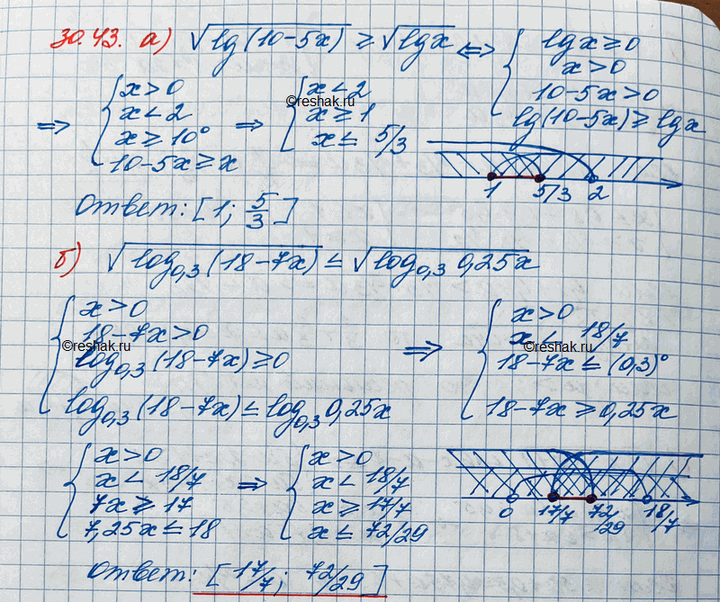 30.43. а) √(lg(10-5x)) ≥ √(lgx) ⟺ { lgx ≥ 0
x > 0
10-5x > 0
lg(10-5x) ≥ lgx
⇒ { x > 0
x < 2
x ≥ 10⁰
10-5x ≥ x
⇒ { x < 2
x ≥ 1
x ≤ 5/3
©reshak.ru
1 5/3 2
Ответ: [1; 5/3]
б) √(log₀,₃(18-7x)) ≤ √(log₀,₃ 0,25x)
{ x > 0
18-7x > 0
©reshak.ru
log₀,₃(18-7x) ≥ 0
log₀,₃(18-7x) ≤ log₀,₃ 0,25x
⇒ { x > 0
x < 18/7
©reshak.ru
18-7x ≤ (0,3)⁰
18-7x ≥ 0,25x
{ x > 0
x < 18/7
7x ≥ 17
7,25x ≤ 18
⇒ { x > 0
x < 18/7
x ≥ 17/7
x ≤ 72/29
0 17/7 72/29 18/7
Ответ: [17/7; 72/29]